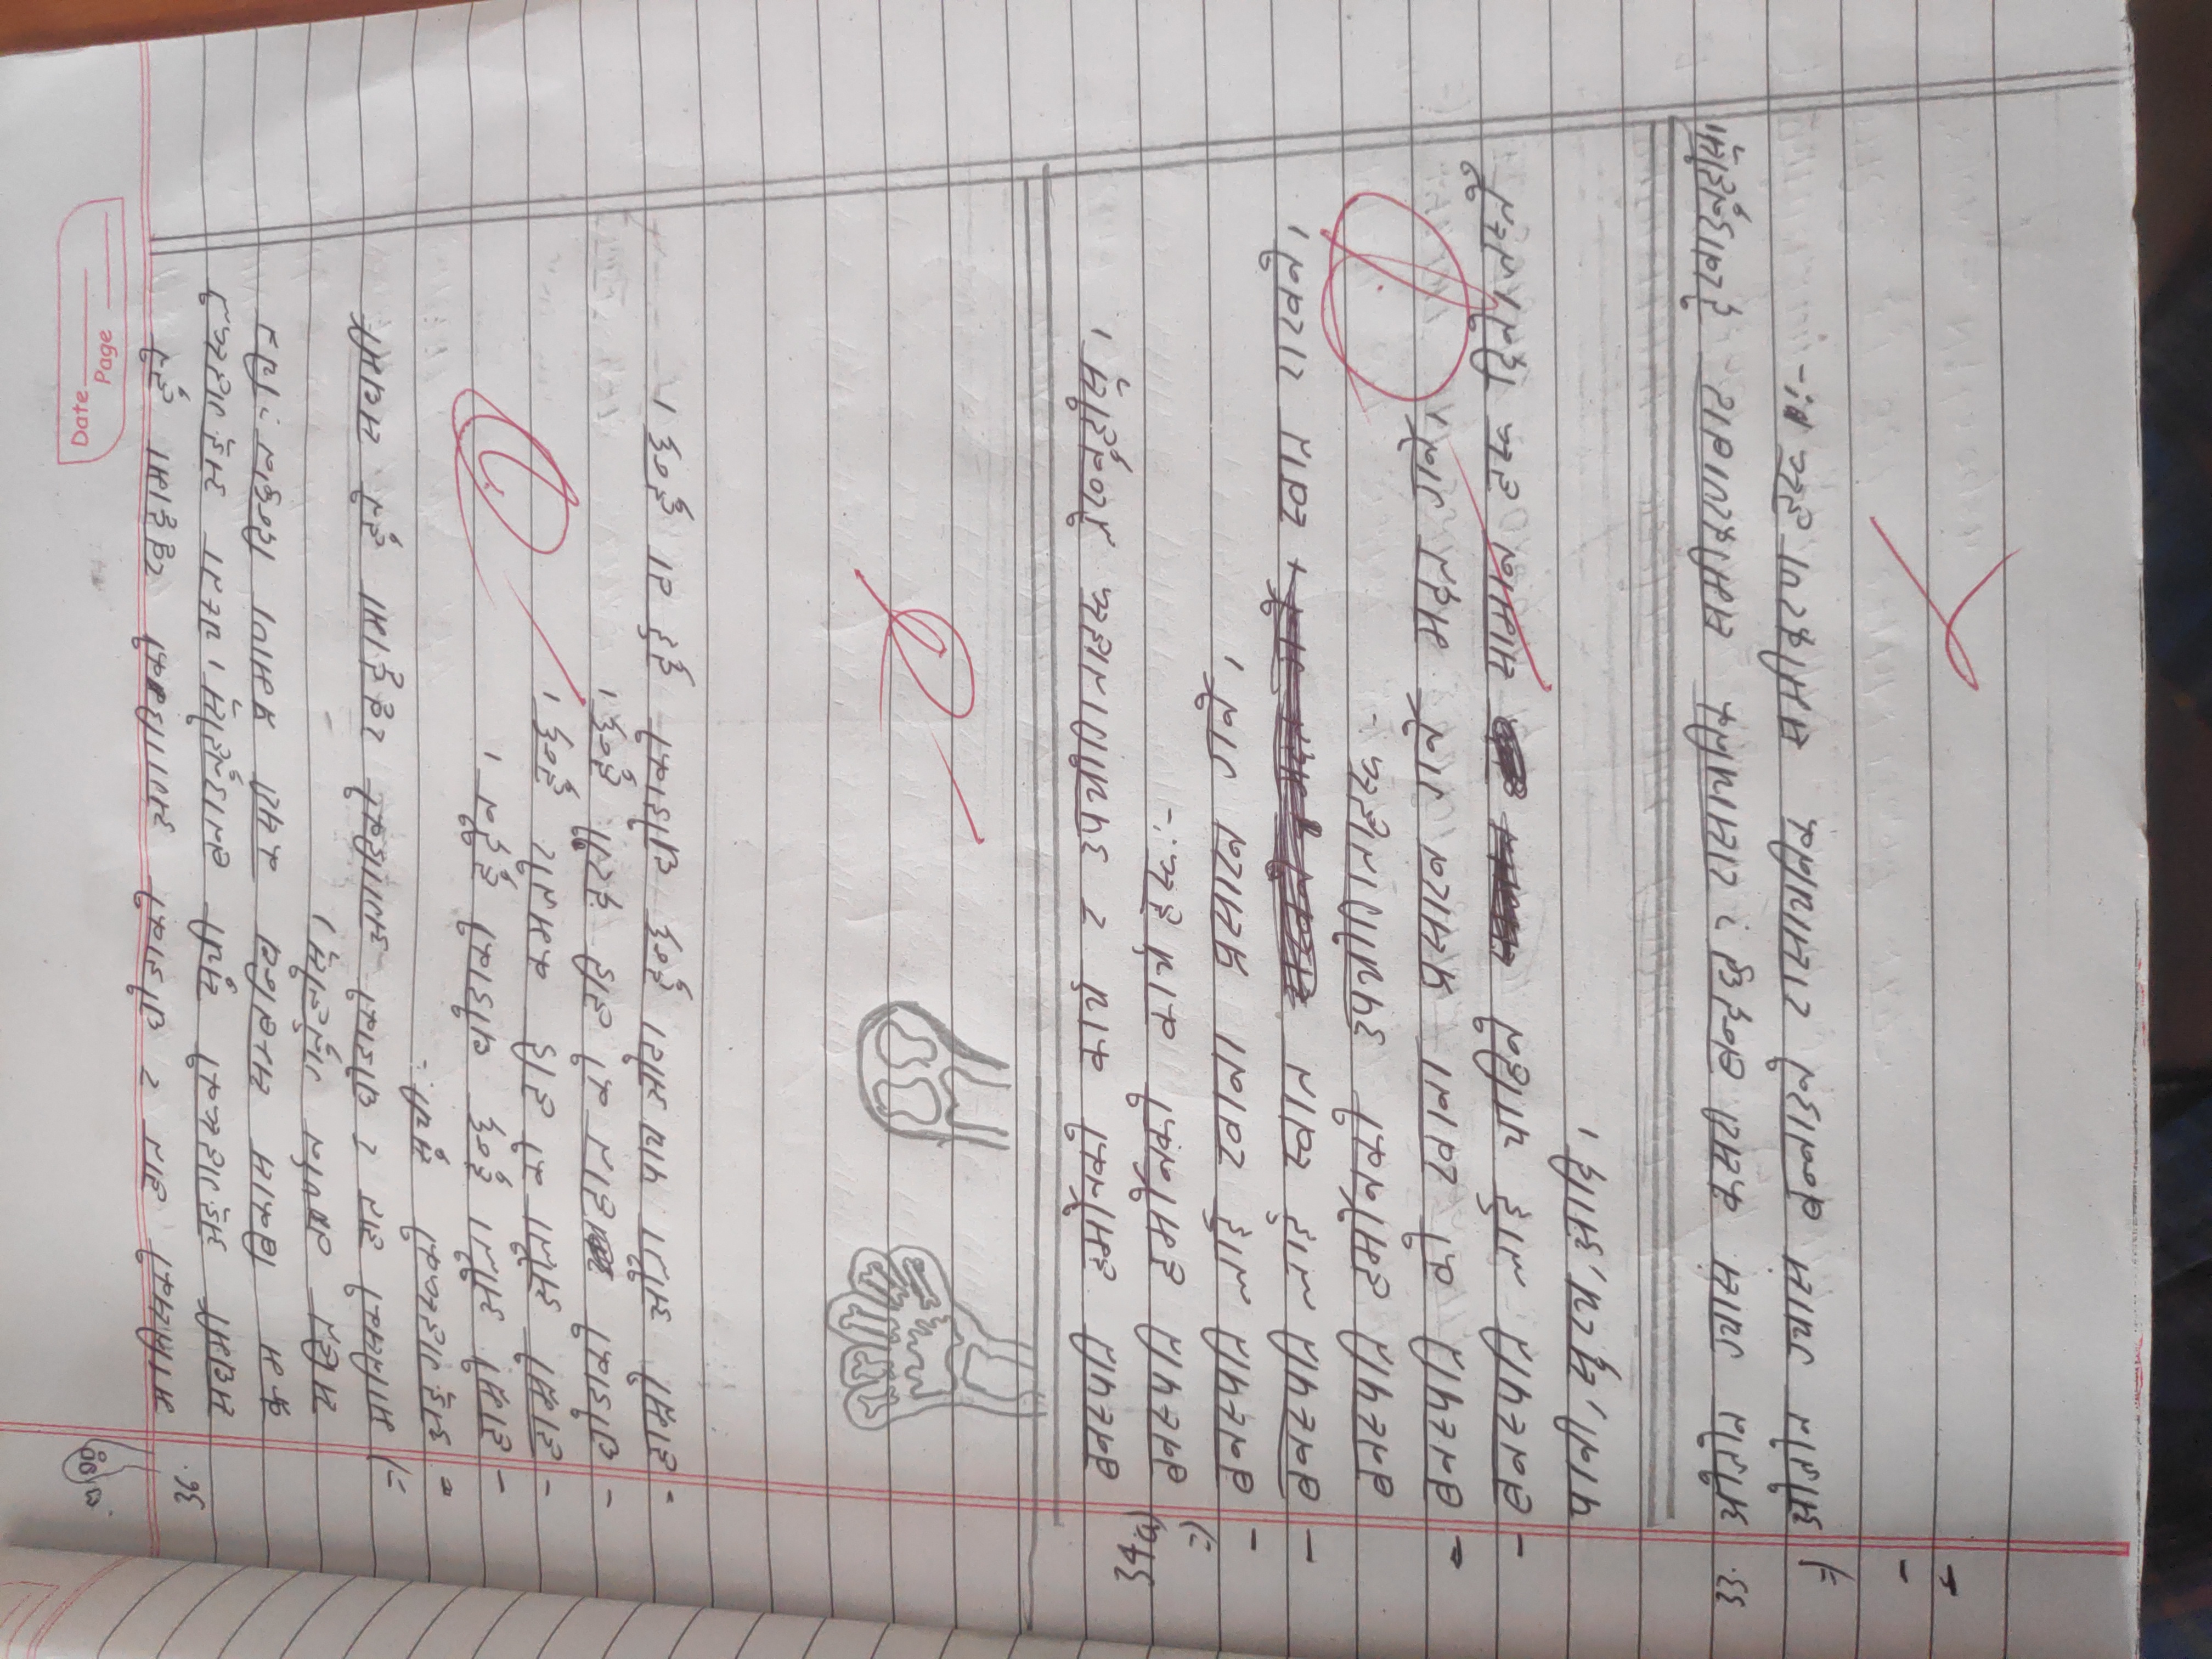 Date
Page
36. मानिसको हात र घोडाको अगाडिको खुट्टामा हुने
सधर्मी अङ्गहरूको सुची बनाउनुहोस्। यस्ता अङ्गहरूले
क्रम बिकास सम्बन्धि कसरी प्रमाण दिन्छन ? चित्र
सहित वर्णन गर्नुहोस्।
=) मानिसको हात र घोडाको अगाडिको खुट्टामा हुने सधर्मी
अङ्गहरूको सुची:-
- हाम्रो औला हुन्छ घोडाको हुदैन ।
- हाम्रो औला को हाडि कमजोर हुन्छ।
- घोडाको हात को हाडि दरो हुन्छ।
- हाम्रो औला पाच ओटा हुन्छ घोडाको दुई टा हुन्छ।
34a) बनस्पति हर्मोनको कार्य र उपयोगिताहरू लेख्नुहोस्।
=) बनस्पति हर्मोनको कार्य हरू:-
- बनस्पति लाई खाना प्रसारन गर्ने।
- बनस्पति लाई स्वात स्वात राख्ने।
बनस्पति हर्मोनको उपयोगिताहरू:-
- बनस्पति को खाना प्रसारन गर्ने मदत गर्ने।
- बनस्पति लाई चाहिने सामान हरू दिने। जस्तै
पानी, सुर्य, आदि।
33. ओजोन ग्यास कसरी बन्दछ ? रासायनिक समीकरणबाट देखाउनुहोस्।
=) ओजोन ग्यास बन्नाउने रासायनिक समीकरण हरू :-